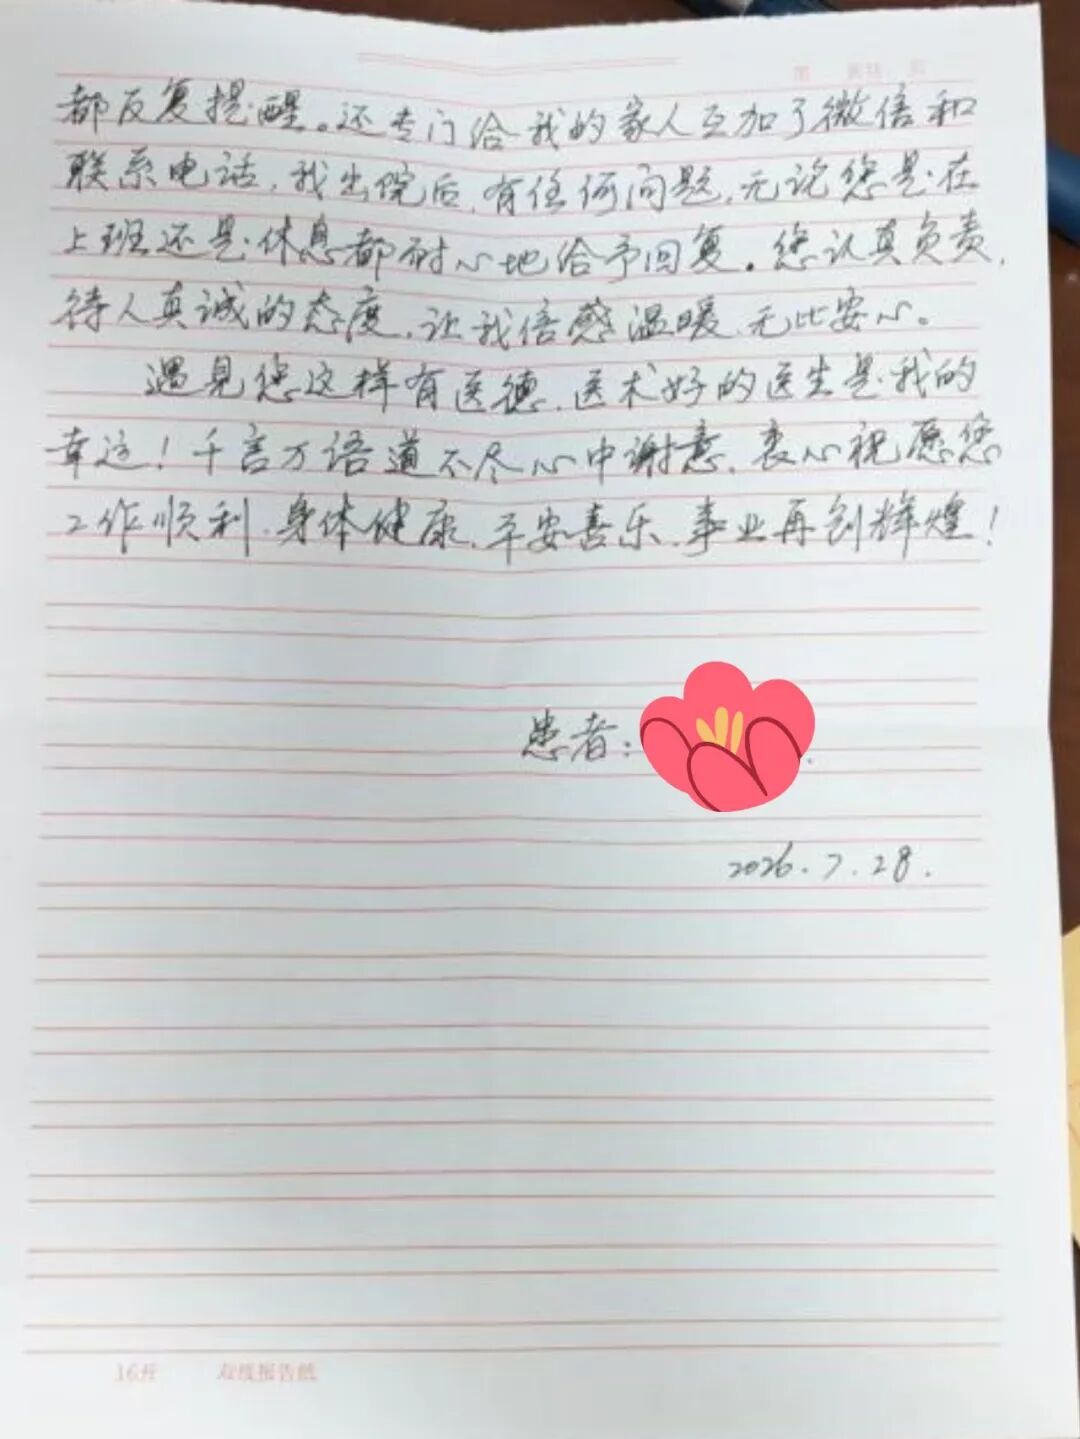 都反复提醒。还专门给我的家人互加了微信和
联系电话，我出院后，有任何问题，无论您是在
上班还是休息都耐心地给予回复。您认真负责，
待人真诚的态度，让我倍感温暖、无比安心。
遇见您这样有医德、医术好的医生是我的
幸运！千言万语道不尽心中谢意，衷心祝愿您
工作顺利、身体健康、平安喜乐、事业再创辉煌！
患者：
2026.7.28.
16开 双线报告纸